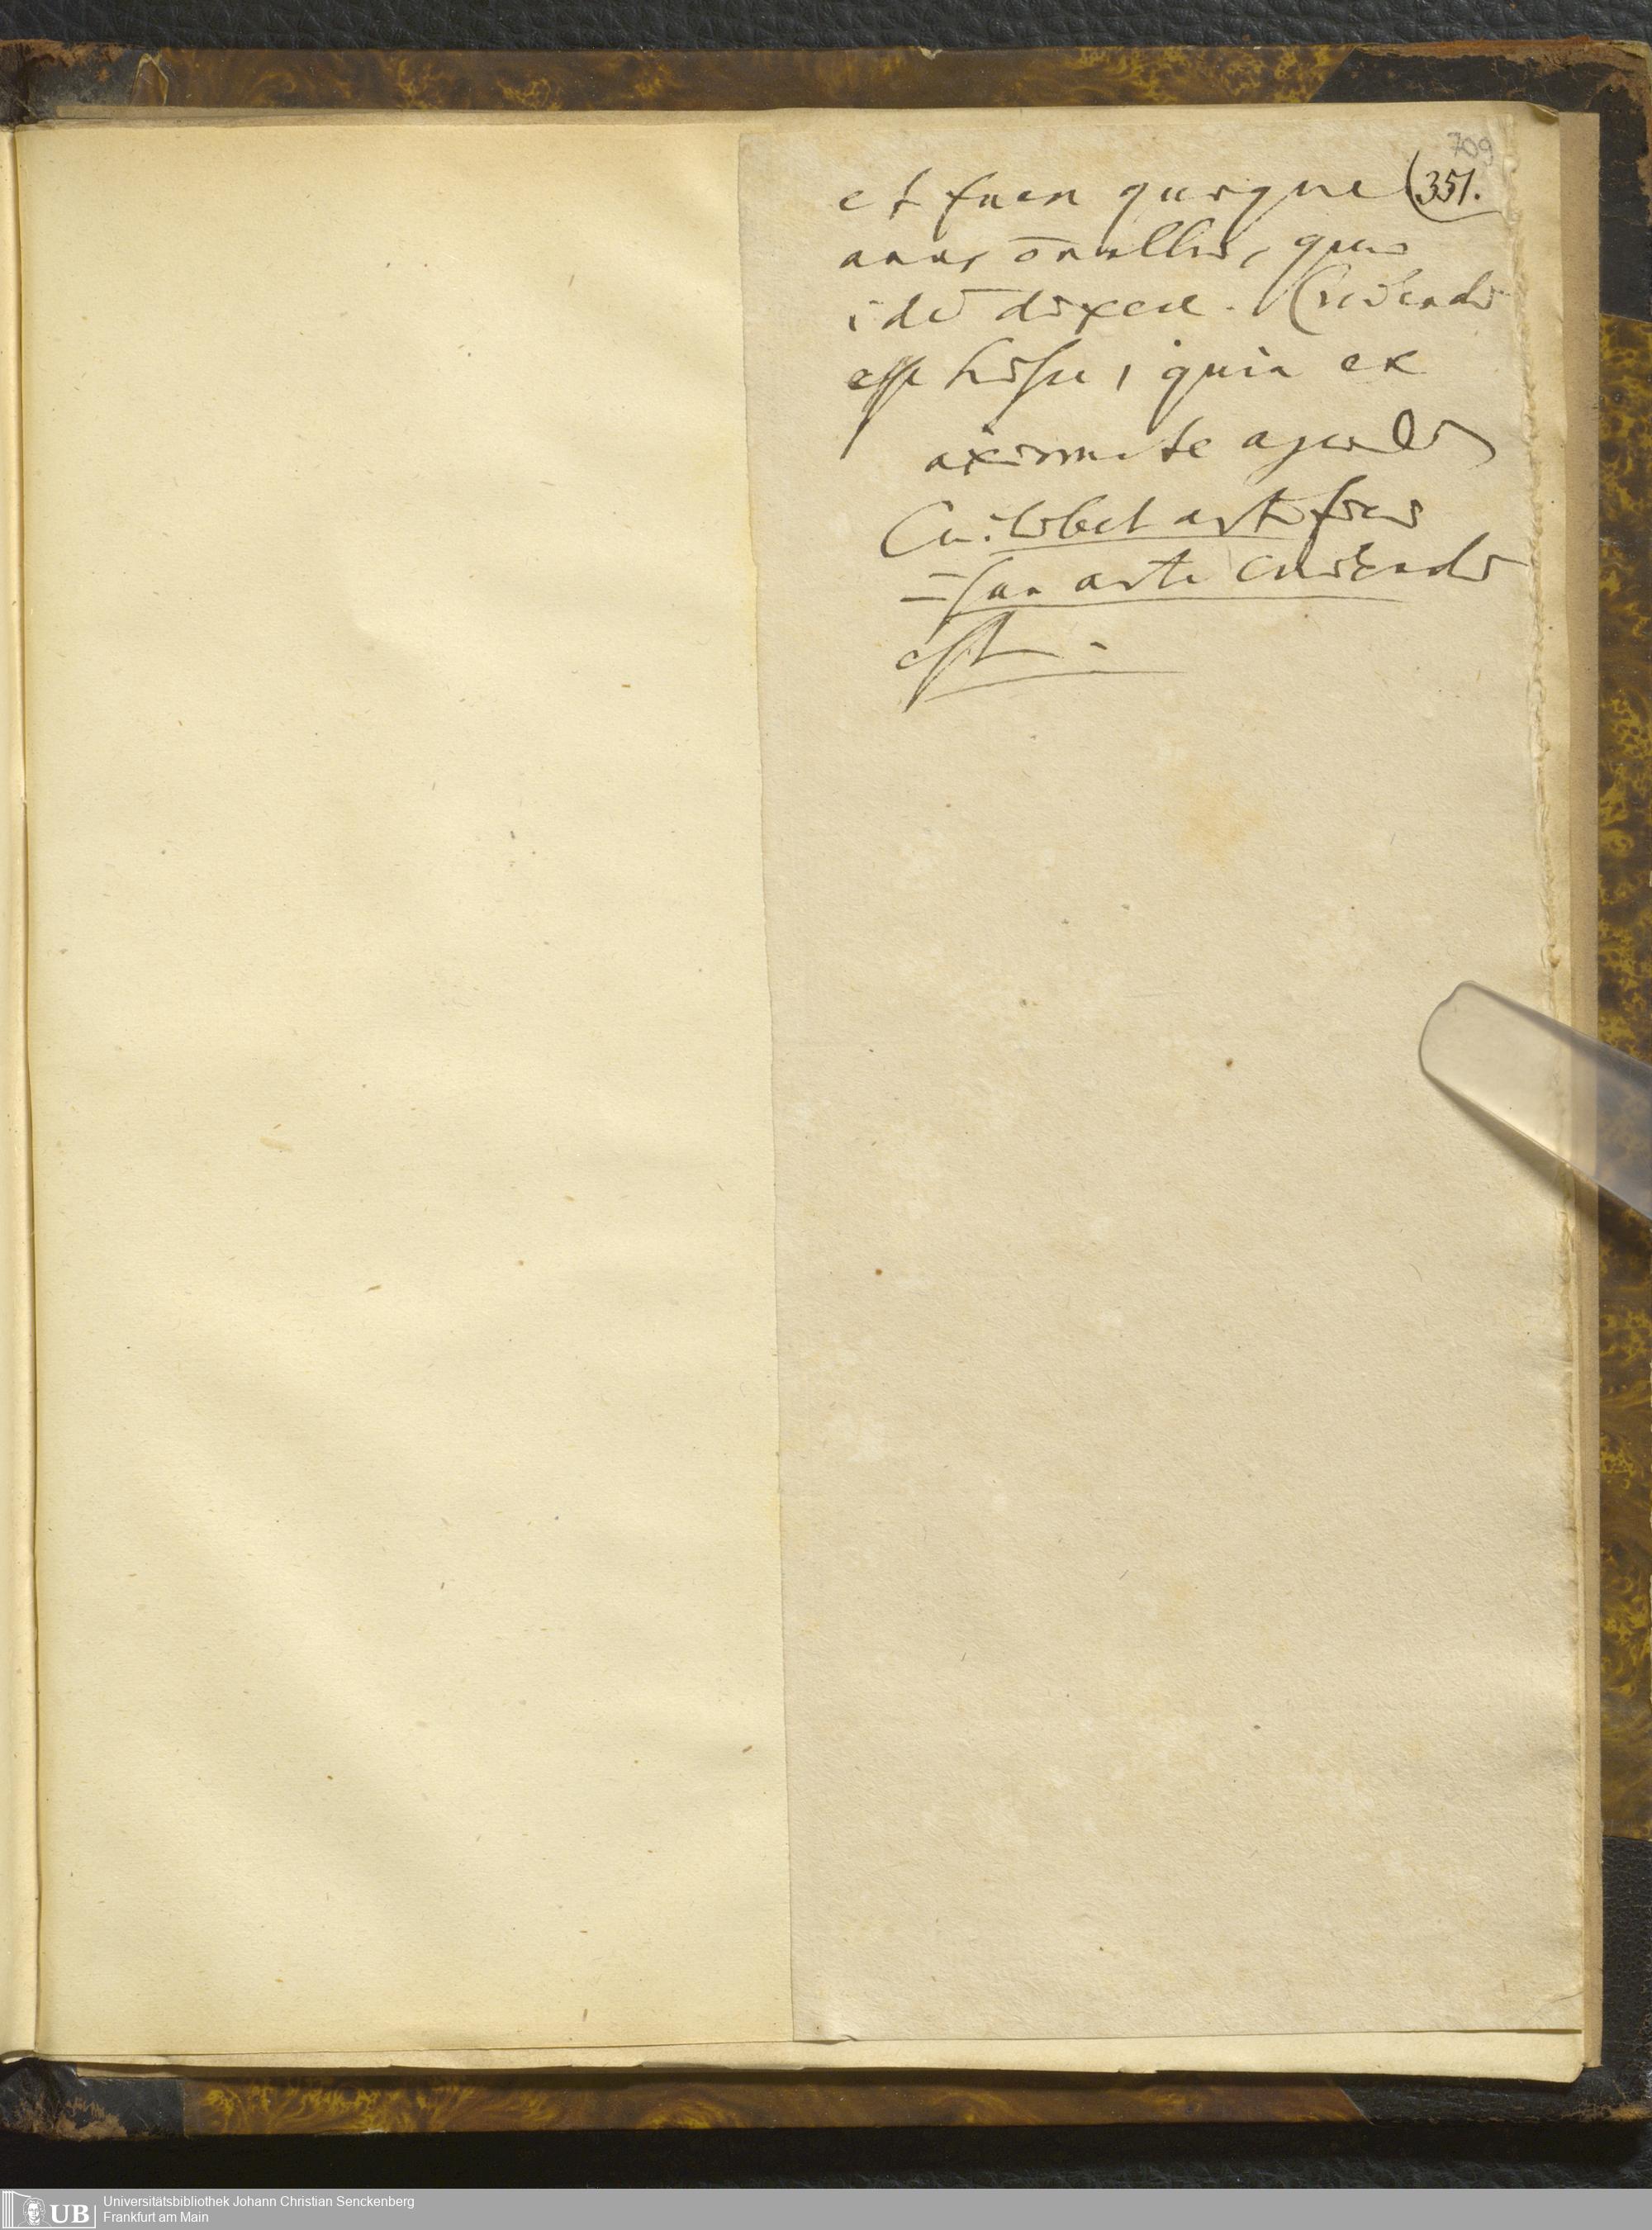 709
et fuen quisque (351.
anus o̅nullis, quis
ide̅ dixere. Credendu̅
esse hisce, quia ex
axiomate
Cuilibet artifici
= sua arte credendu̅
est.
UB Universitätsbibliothek Johann Christian Senckenberg
Frankfurt am Main